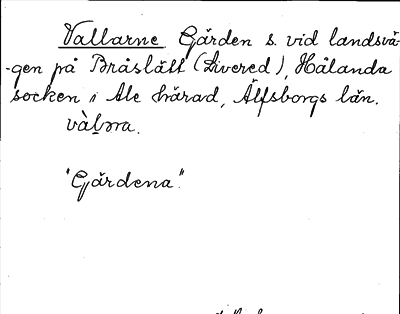 Vallarne Gärden s. vid landsvä-
-gen på Bråslätt (Livered), Hålanda
socken i Ale härad, Älfsborgs län.
"Gärdena".